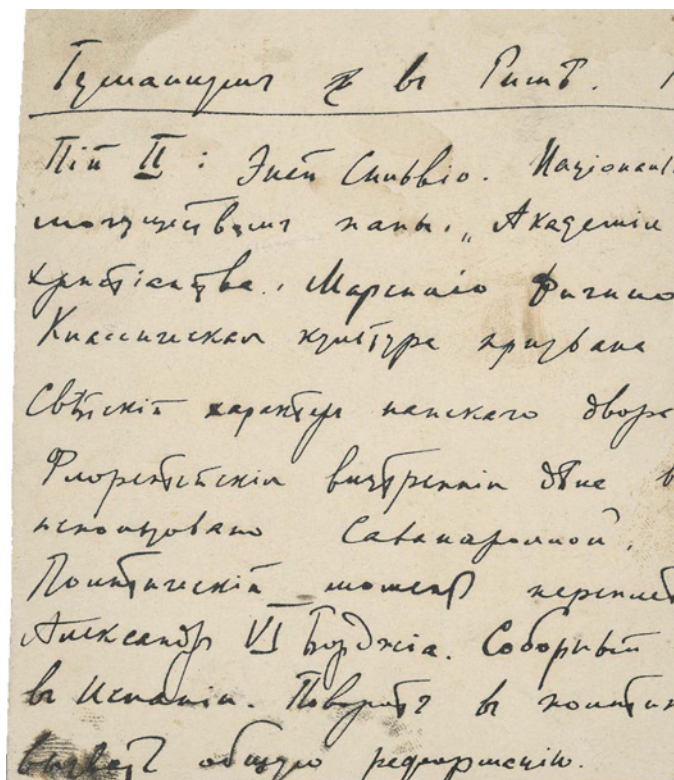 Гуманизмъ въ Римѣ.
Пій II : Эней Сильвіо. Націонал
могуществомъ папы. „Академія
христіанства. Марсиліо Фичино
Классическая культура призвана
Свѣтскій характеръ папскаго двора
Флорентійскія внутреннія дѣла в
использовано Саванароллой.
Политическій моментъ переплет
Александръ VI Борджіа. Соборный
въ Испаніи. Поворотъ въ политик
общую реформацію.